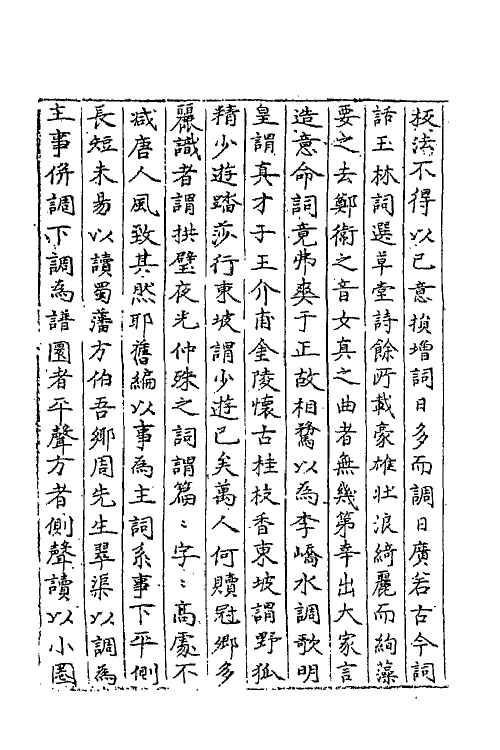 按法不得以已意損增詞日多而調日廣若古今詞
話玉林詞選草堂詩餘所載豪雄壯浪綺麗而絢藻
要之去鄭衛之音女真之曲者無幾第幸出大家言
造意命詞竟弗爽于正故相騖以為李嶠水調歌明
皇謂真才子王介甫金陵懷古桂枝香東坡謂野狐
精少遊踏莎行東坡謂少遊已矣萬人何贖冠鄉多
麗識者謂拱璧夜光仲殊之詞謂篇〻字〻高處不
減唐人風致其然耶舊編以事為主詞系事下平側
長短未易以讀蜀藩方伯吾鄉周先生翠渠以調為
主事併調下調為譜圜者平聲方者側聲讀以小圈